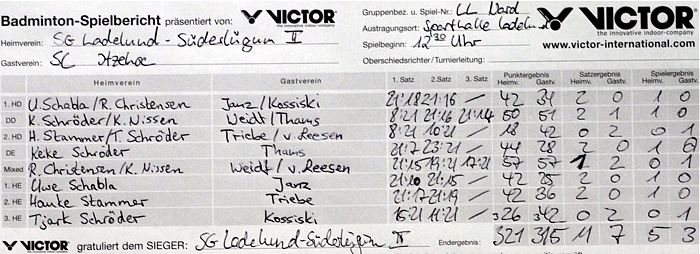 Badminton-Spielbericht präsentiert von: VICTOR the innovative indoor-company Gruppenbez. u. Spiel-Nr.: LL Nord VICTOR the innovative indoor-company
Heimverein: SG Ladelund-Süderlügum II Austragungsort: Sporthalle Ladelund
Gastverein: SC Itzehoe Spielbeginn: 12³⁰ Uhr www.victor-international.com
Oberschiedsrichter/Turnierleitung:
Heimverein Gastverein 1. Satz 2. Satz 3. Satz Punktergebn. Heimv. Gastv. Satzergebn. Heimv. Gastv. Spielergebn. Heimv. Gastv.
1. HD U. Schabla/R. Christensen Janz/Kossiski 21:18 21:16 / 42 34 2 0 1 0
DD K. Schröder/K. Nissen Weidt/Thams 8:21 21:16 21:14 50 51 2 1 1 0
2. HD H. Stammer/T. Schröder Triebe/v. Leesen 8:21 10:21 / 18 42 0 2 0 1
DE Keike Schröder Thams 21:7 23:21 / 44 28 2 0 1 0
Mixed R. Christensen/K. Nissen Weidt/v. Leesen 21:15 19:21 17:21 57 57 1 2 0 1
1. HE Uwe Schabla Janz 21:10 21:15 / 42 25 2 0 1 0
2. HE Hauke Stammer Triebe 21:17 21:19 / 42 36 2 0 1 0
3. HE Tjark Schröder Kossiski 15:21 11:21 / 26 42 0 2 0 1
VICTOR gratuliert dem SIEGER: SG Ladelund-Süderlügum II Endergebnis: 321 315 11 7 5 3